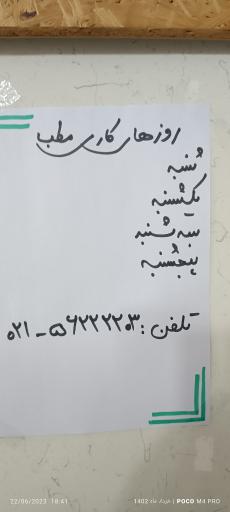 روزهای کاری مطب
شنبه
یکشنبه
سه شنبه
پنجشنبه
تلفن: ۰۲۱-۵۶۲۲۲۲۰۳
22/06/2023 18:41
1402 خرداد ماه | POCO M4 PRO